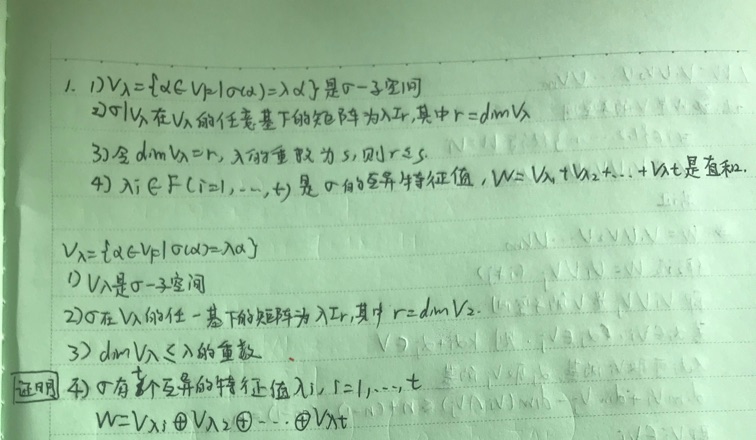 1. 1) Vλ={α∈V_F|σ(α)=λα}是σ-子空间
2) σ|Vλ在Vλ的任意基下的矩阵为λIr,其中r=dimVλ
3) 令dimVλ=r, λ的重数为s, 则r≤s.
4) λi∈F(i=1,…,t)是σ的互异特征值, W=Vλ1+Vλ2+…+Vλt是直和.
Vλ={α∈V_F|σ(α)=λα}
1) Vλ是σ-子空间
2) σ在Vλ的任一基下的矩阵为λIr,其中r=dimVλ.
3) dimVλ≤λ的重数
证明 4) σ有t个互异的特征值λi, i=1,…,t
W=Vλ1⊕Vλ2⊕…⊕Vλt